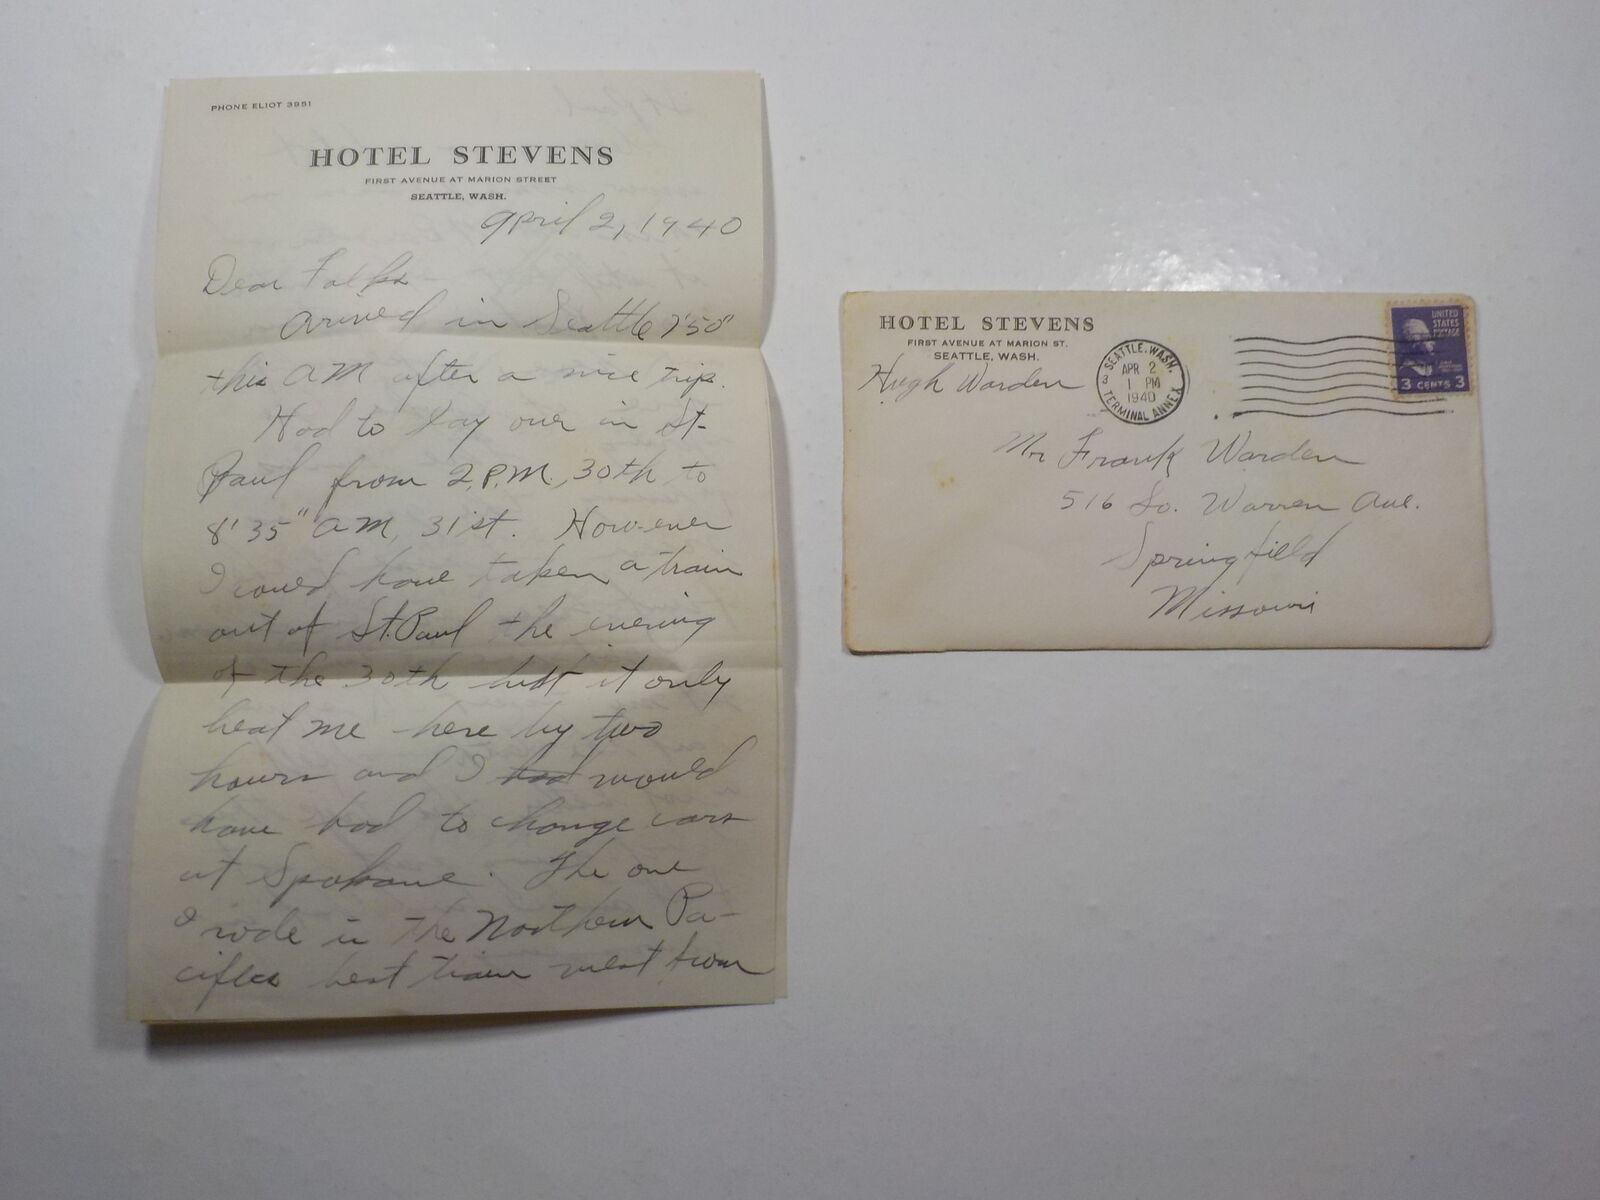 PHONE ELIOT 3951
HOTEL STEVENS
FIRST AVENUE AT MARION STREET
SEATTLE, WASH.
April 2, 1940
Dear Folks -
Arrived in Seattle 7'50"
this AM after a nice trip.
Had to lay over in St.
Paul from 2 P.M. 30th to
8'35" AM, 31st. How-ever
I could have taken a train
out of St. Paul the evening
of the 30th but it only
beat me here by two
hours and I had would
have had to change cars
at Spokane. The one
I rode is the Northern Pa-
cifics best train west from
HOTEL STEVENS
FIRST AVENUE AT MARION ST.
SEATTLE, WASH.
Hugh Warden
SEATTLE, WASH.
3
APR 2
1 PM
1940
TERMINAL ANNEX
UNITED
STATES
POSTAGE
3 CENTS 3
Mr Frank Warden
516 So. Warren Ave.
Springfield
Missouri